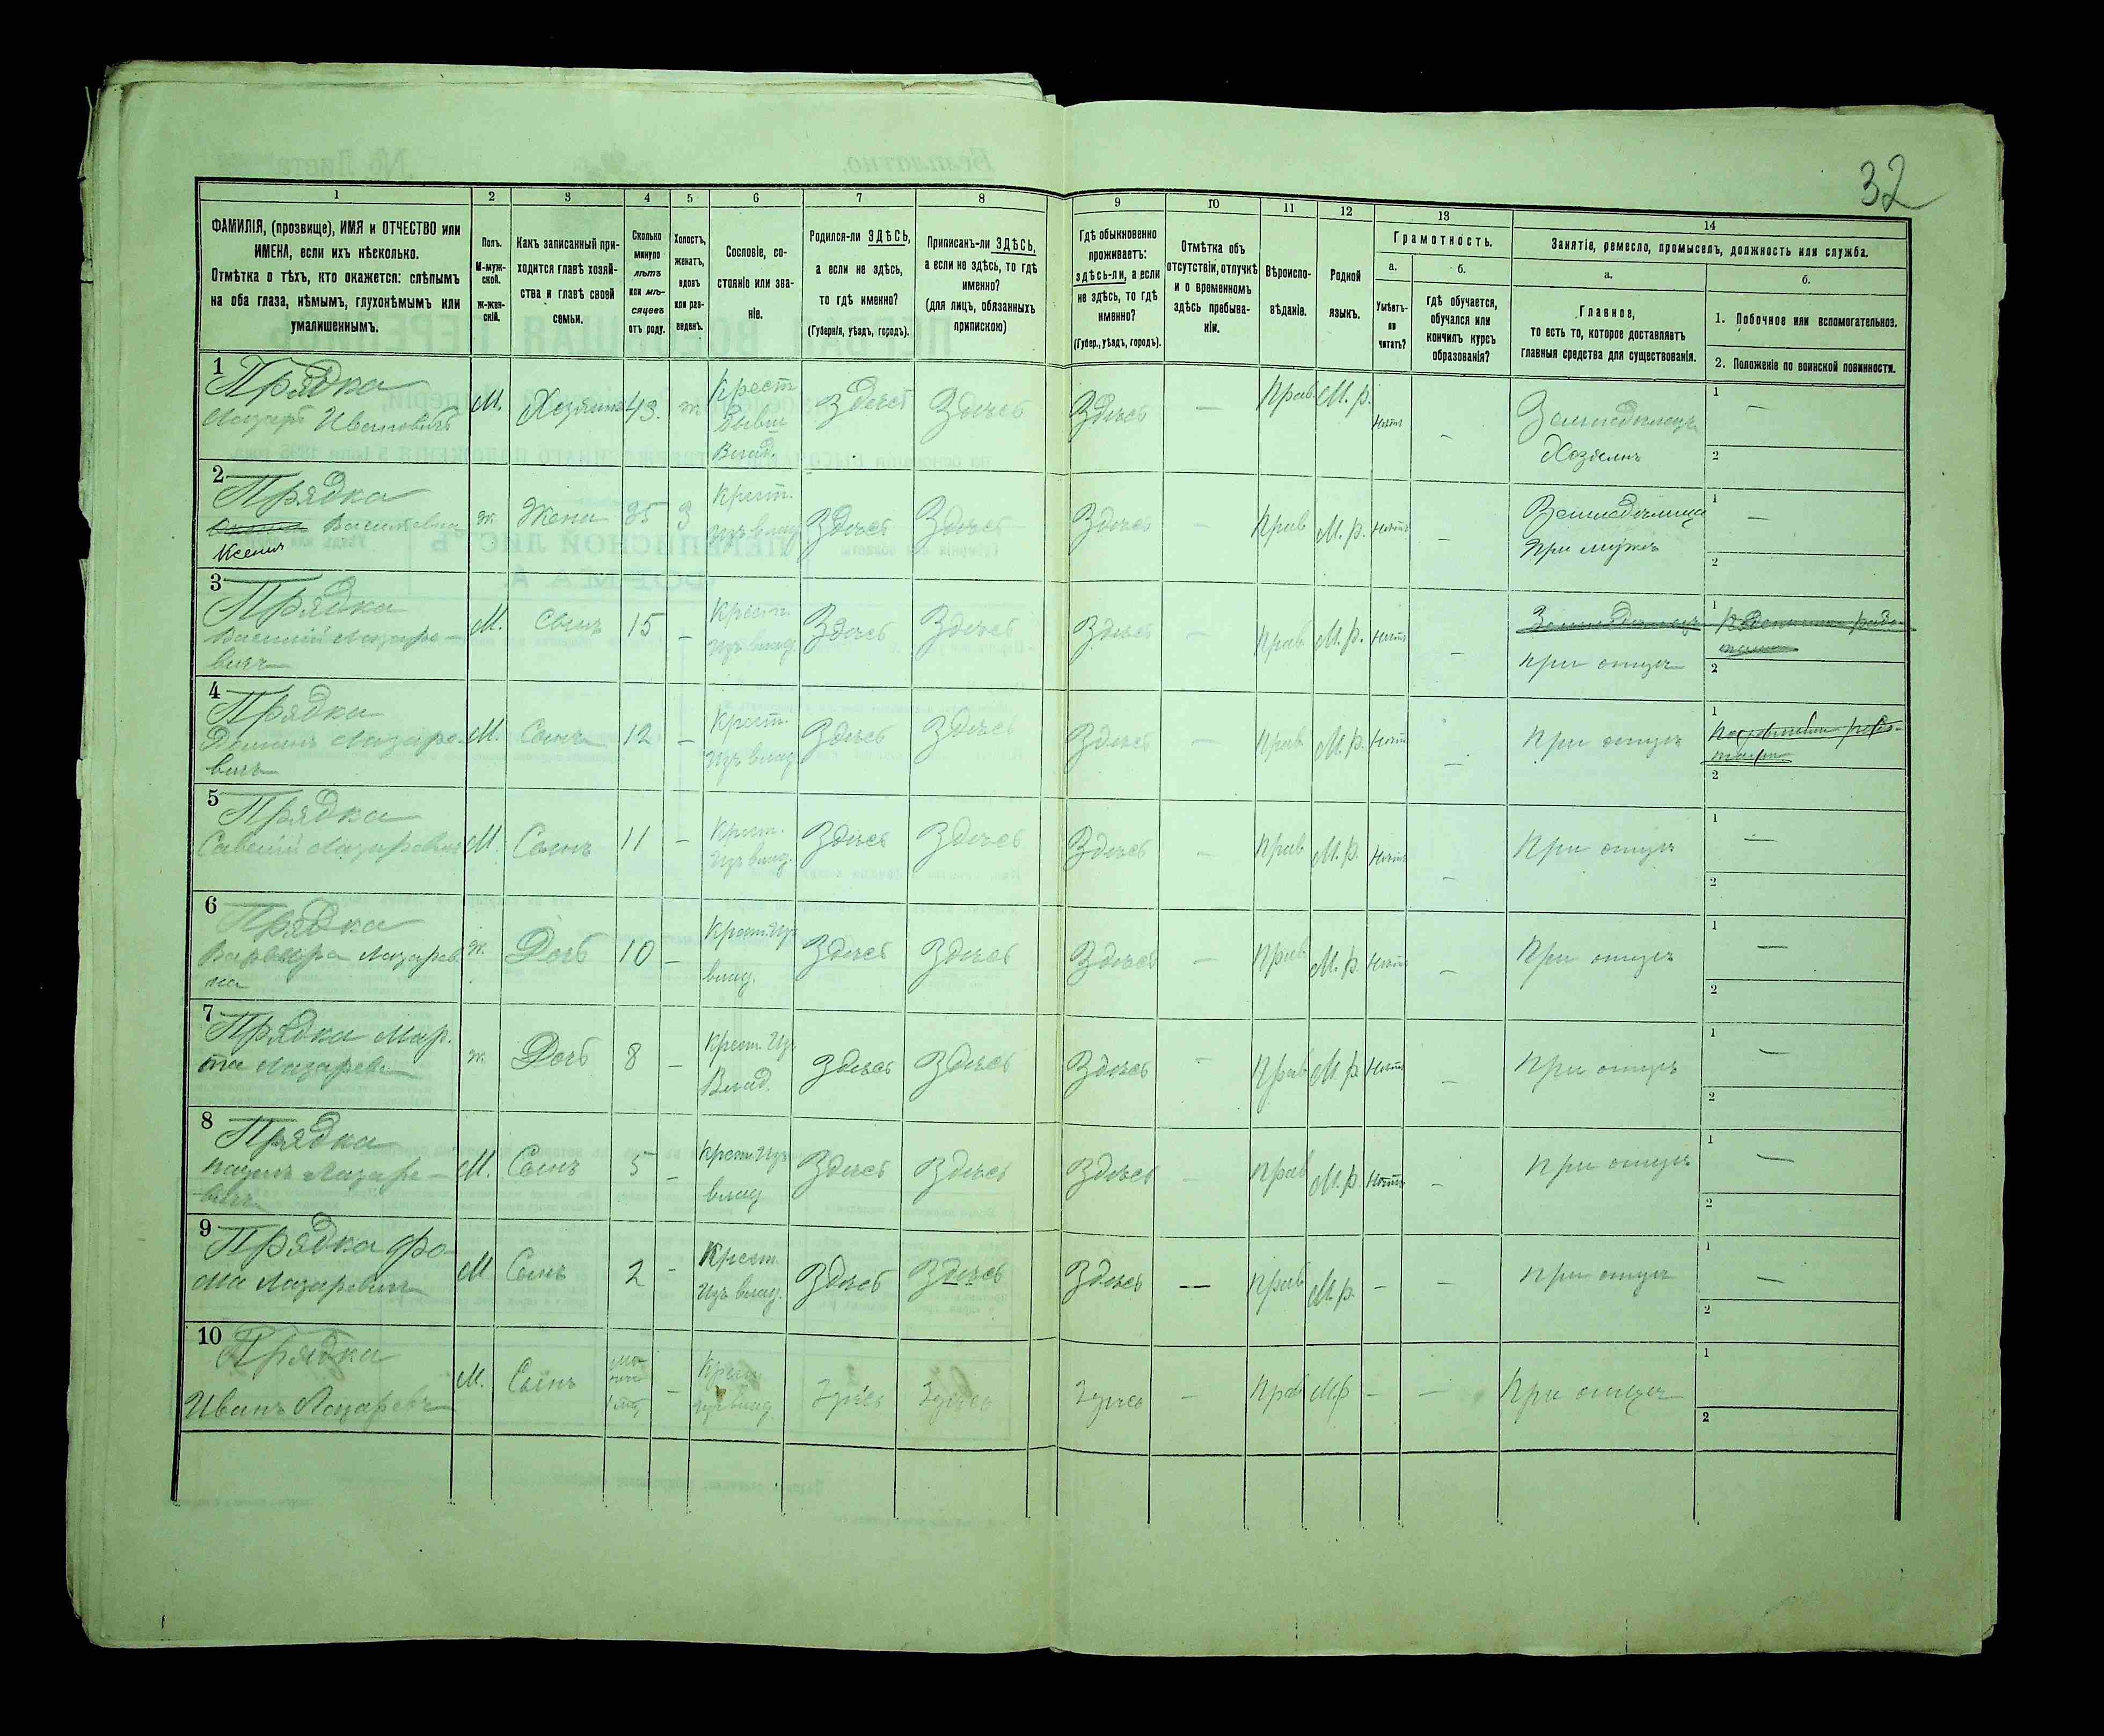 32
1 2 3 4 5 6 7 8 9 10 11 12 13 14
ФАМИЛІЯ, (прозвище), ИМЯ и ОТЧЕСТВО или
ИМЕНА, если ихъ нѣсколько.
Отмѣтка о тѣхъ, кто окажется: слѣпымъ
на оба глаза, нѣмымъ, глухонѣмымъ или
умалишеннымъ.
Полъ.
М-муж-
ской.
ж-жен-
скій.
Какъ записанный при-
ходится главѣ хозяй-
ства и главѣ своей
семьи.
Сколько
минуло
лѣтъ
или мѣ-
сяцевъ
отъ роду.
Холостъ,
женатъ,
вдовъ
или раз-
веденъ.
Сословіе, со-
стояніе или зва-
ніе.
Родился-ли ЗДѢСЬ,
а если не здѣсь,
то гдѣ именно?
(Губернія, уѣздъ, городъ).
Приписанъ-ли ЗДѢСЬ,
а если не здѣсь, то гдѣ
именно?
(для лицъ, обязанныхъ
припискою)
Гдѣ обыкновенно
проживаетъ:
здѣсь-ли, а если
не здѣсь, то гдѣ
именно?
(Губер., уѣздъ, городъ).
Отмѣтка объ
отсутствіи, отлучкѣ
и о временномъ
здѣсь пребыва-
ніи.
Вѣроиспо-
вѣданіе.
Родной
языкъ.
Грамотность.
а.
Умѣетъ-
ли
читать?
б.
гдѣ обучается,
обучался или
кончилъ курсъ
образованія?
Занятіе, ремесло, промыселъ, должность или служба.
а.
Главное,
то есть то, которое доставляетъ
главныя средства для существованія.
б.
1. Побочное или вспомогательное.
2. Положеніе по воинской повинности.
1
Прядка
Лазарь Ивановичъ
М. Хозяинъ 43. ж.
Крест
Бывш
Влад.
Здѣсь Здѣсь Здѣсь — Прав. М. р. Нѣтъ —
Земледѣлецъ
Хозяинъ
1 —
2
2
Прядка
Васильевна
Ксенія
ж. Жена 35 З
Крест.
изъ влад
Здѣсь Здѣсь Здѣсь — Прав М. р. Нѣтъ —
Земледѣлица
При мужѣ
1 —
2
3
Прядка
Василій Лазаре-
вичъ
М. Сынъ 15 —
Крест.
изъ влад.
Здѣсь Здѣсь Здѣсь — Прав М. р. Нѣтъ —
Земледѣлецъ
при отцѣ
1
2
4
Прядка
Лазаре-
вичъ
М. Сынъ 12 —
Крест.
Изъ влад.
Здѣсь Здѣсь Здѣсь — Прав М. р. Нѣтъ —
При отцѣ
1
2
5
Прядка
Савелій Лазаревич
М. Сынъ 11 —
Крест.
Изъ влад.
Здѣсь Здѣсь Здѣсь — Прав М. р. Нѣтъ —
При отцѣ
1 —
2
6
Прядка
Варвара Лазарев
на
ж. Дочь 10 —
Крест. Изъ
влад.
Здѣсь Здѣсь Здѣсь — Прав М. р. Нѣтъ —
При отцѣ
1 —
2
7
Прядка Мар.
та Лазаревн
ж. Дочь 8 —
Крест. Изъ
Влад.
Здѣсь Здѣсь Здѣсь — Прав М. р. Нѣтъ —
При отцѣ
1 —
2
8
Прядка
Наумъ Лазаре-
вичъ
М. Сынъ 5 —
Крест Изъ
влад
Здѣсь Здѣсь Здѣсь — Прав М. р. Нѣтъ —
При отцѣ
1 —
2
9
Прядка Фо
ма Лазаревичъ
М Сынъ 2 —
Крест.
Изъ влад.
Здѣсь Здѣсь Здѣсь — Прав М. р. — —
При отцѣ
1 —
2
10
Прядка
Иванъ Лазаревъ
М. Сынъ —
Крест
Изъ влад
Здѣсь Здѣсь Здѣсь — Прав М.р — —
При отцѣ
1
2